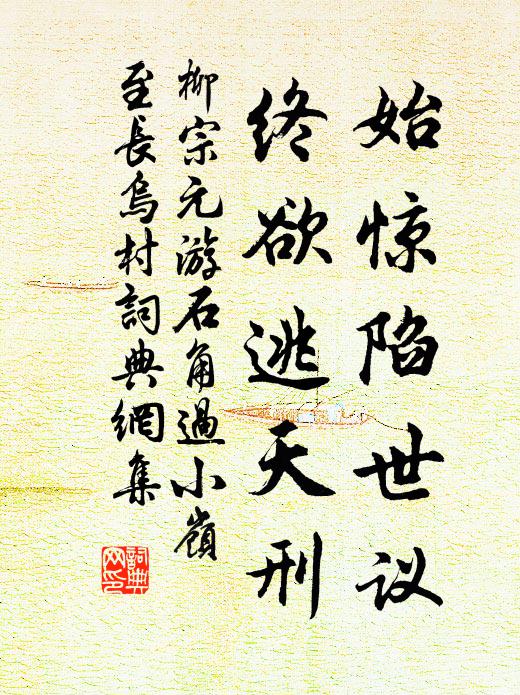 始惊陷世议
终欲逃天刑
柳宗元游石角過小嶺
至長烏村詞典網集
詞典网印